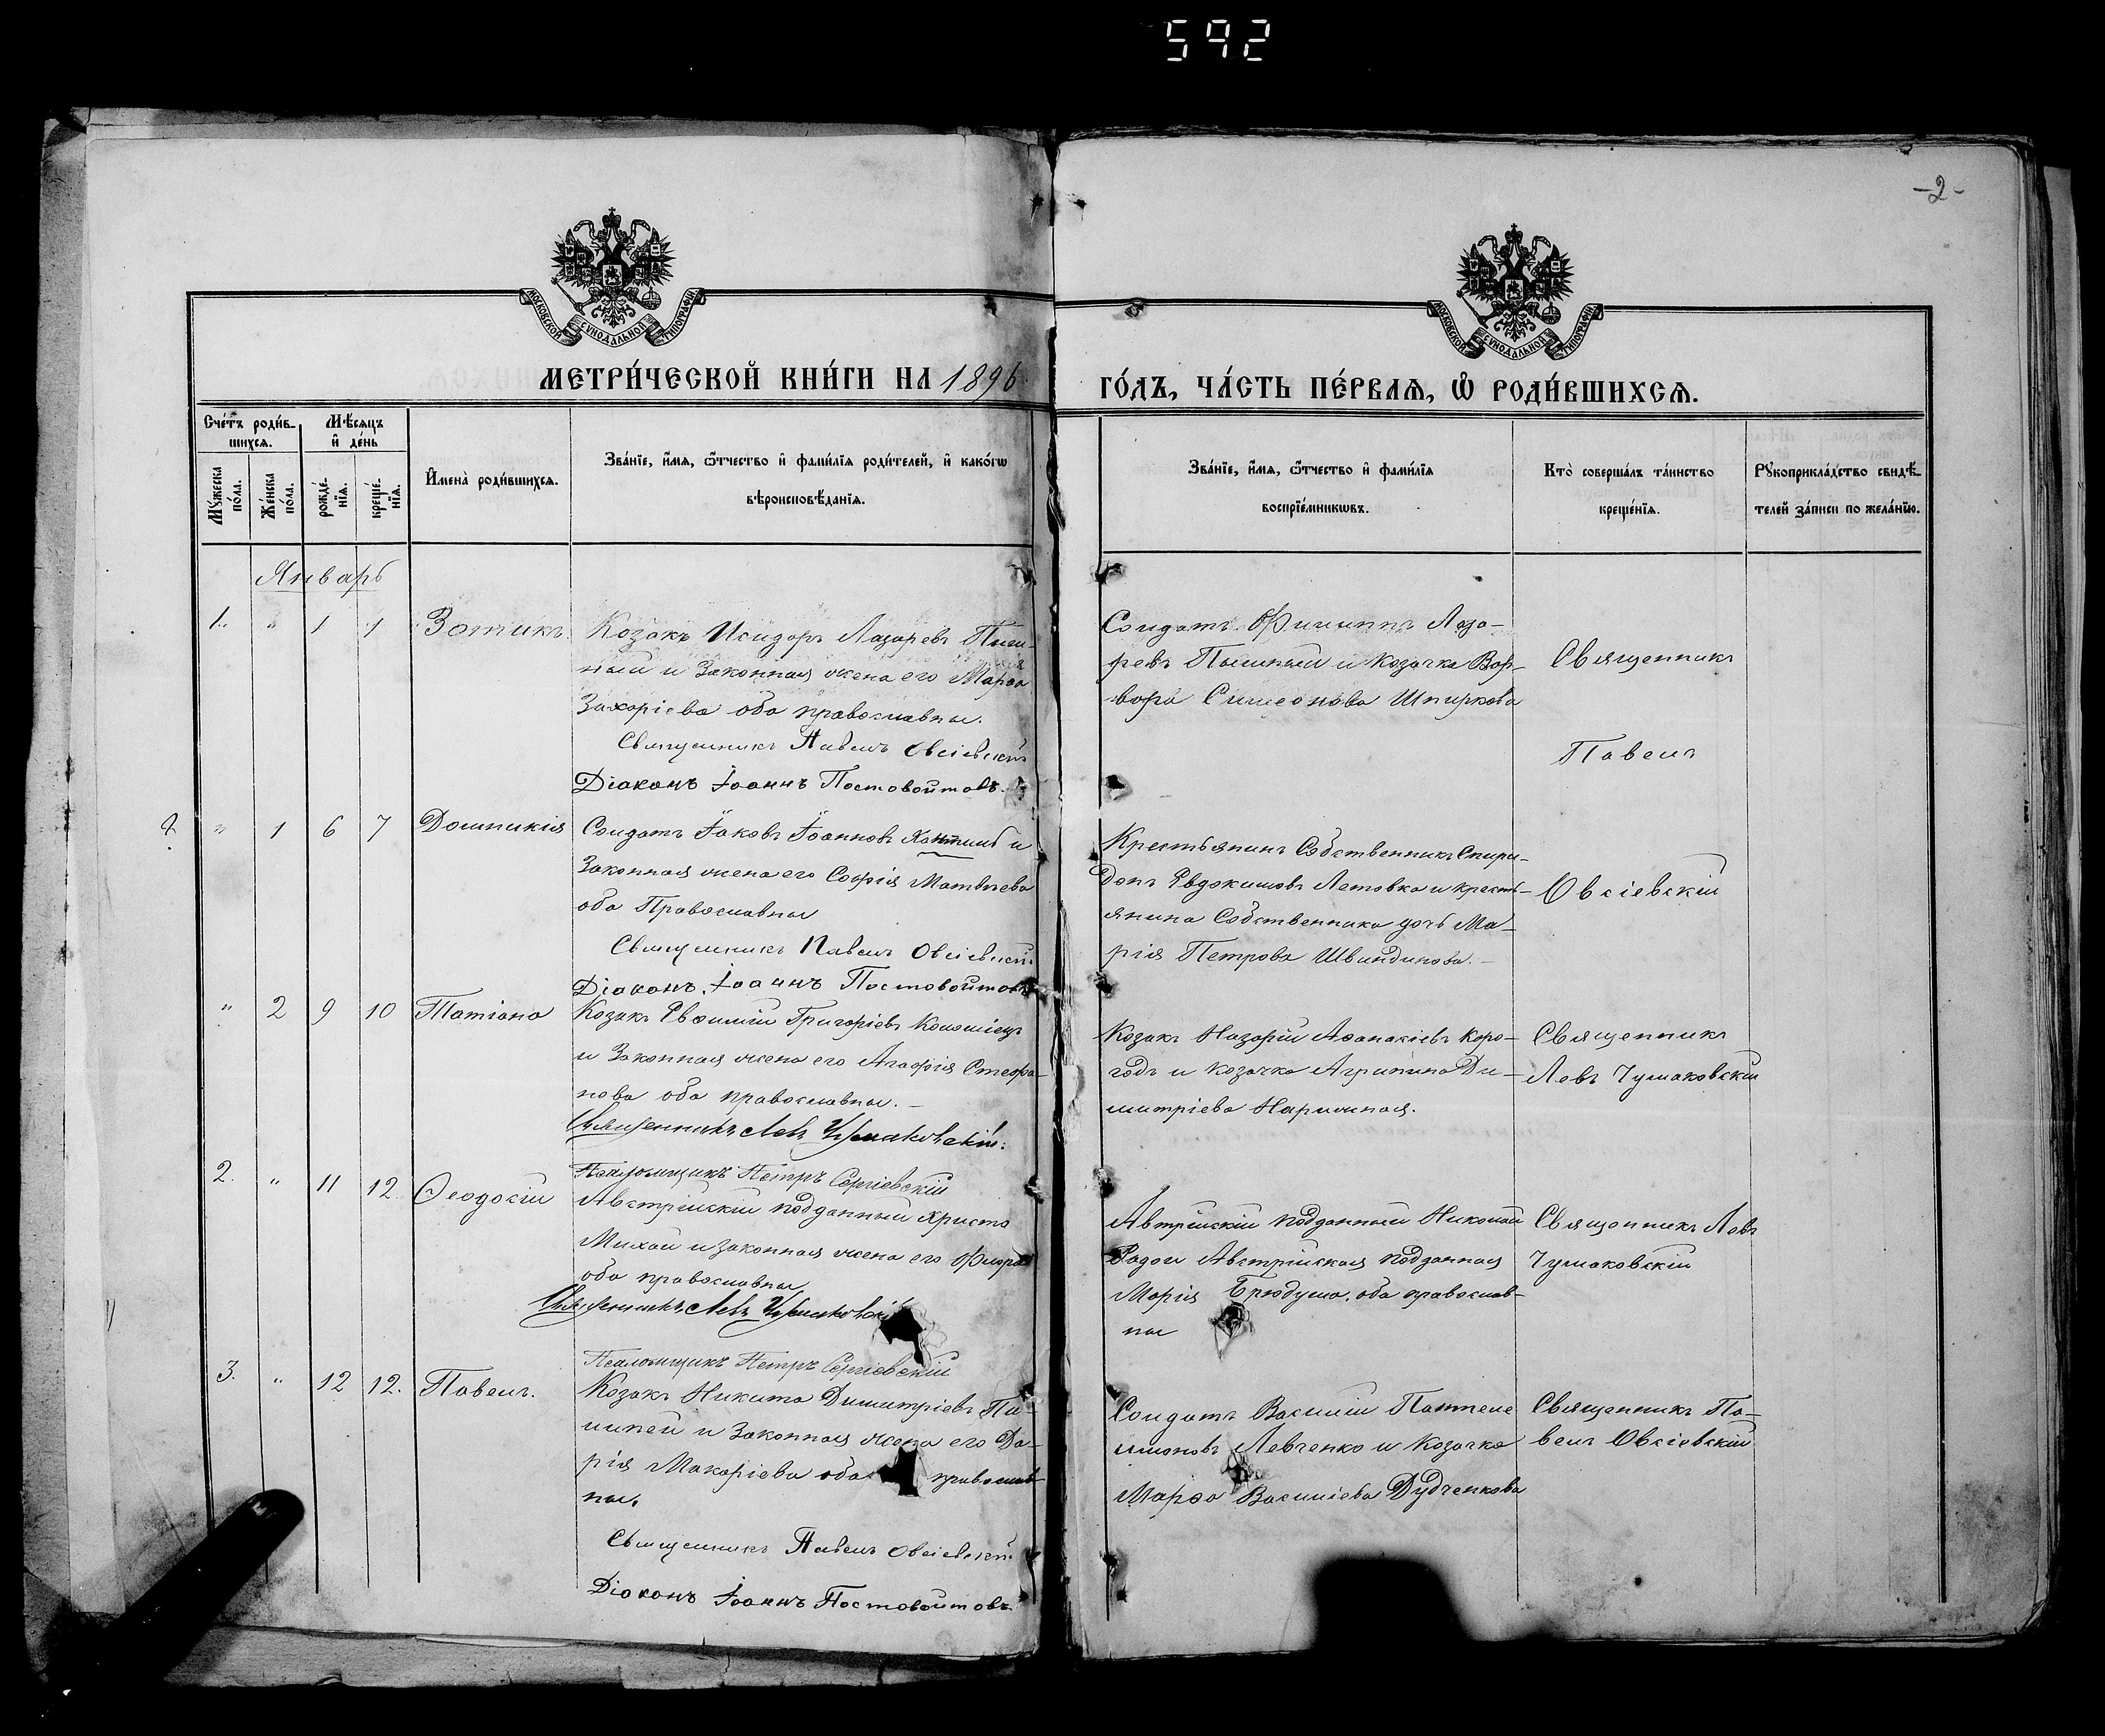 592
-2-
МОСКОВСКОЙ СУНОДАЛЬНОЙ ТИПОГРАФІИ
МОСКОВСКОЙ СУНОДАЛЬНОЙ ТИПОГРАФІИ
МЕТРИ́ЧЕСКОЙ КНИ́ГИ НА 1896
ГО́ДЪ, ЧА́СТЬ ПЕ́РВАѦ, Ѡ҆ РОДИ́ВШИХСѦ.
Сче́тъ роди́в-
шихсѧ.
Мѣ́сѧцъ
и҆ де́нь
Мꙋ́жеска по́ла.
Же́нска по́ла.
рожде́-нїѧ.
креще́-нїѧ.
И҆мена̀ роди́вшихсѧ.
Зва́нїе, и҆́мѧ, ѻ҆́тчество и҆ фами́лїѧ роди́телей, и҆ како́гѡ
вѣроисповѣ́данїѧ.
Зва́нїе, и҆́мѧ, ѻ҆́тчество и҆ фами́лїѧ
воспрїе́мникѡвъ.
Кто̀ соверша́лъ та́инство
креще́нїѧ.
Рꙋкоприкла́дство свидѣ́-
телей за́писи по жела́нїю.
Январь
1. " 1 1 Зотикъ
Козакъ Исидоръ Лазаревъ Пыш-
ный и Законная жена его Марѳа
Захаріева оба православны.
Священникъ Павелъ Овсіевскій
Діаконъ Іоаннъ Постовойтовъ.
Солдатъ Филиппъ Лаза-
ревъ Пышный и козачка Вар-
вара Симеонова Шпиркова
Священникъ
Павелъ
? " 1 6 7 Домникія
Солдатъ Іаковъ Іоанновъ и
Законная жена его Софія Матвѣева
оба Православны
Священникъ Павелъ Овсіевскій
Діаконъ Іоаннъ Постовойтовъ
Крестьянинъ Собственникъ Спири-
донъ Евдокимовъ Летовка и крестъ-
янина Собственника дочь Ма-
рія Петрова Швиндинова.
Овсіевскій
" 2 9 10 Татіана
Козакъ Евѳимій Григоріевъ Коломіецъ
и Законная жена его Агафія Стефа-
нова оба православны.
Священникъ Левъ Чумаковскій.
Псаломщикъ Петръ Сергіевскій
Козакъ Назарій Аѳанасіевъ Коро-
годъ и козачка Агрипина Ди-
митріева Нарижная.
Священникъ
Левъ Чумаковскій
2. " 11 12 Ѳеодосій
Австрійскій подданный Христо
Михай и законная жена его Флора
оба православны
Священникъ Левъ Чумаковскій
Псаломщикъ Петръ Сергіевскій
Автрійскій подданный Николай
Радой Австрійская подданная
Марія оба православ-
ны
Священникъ Левъ
Чумаковскій
3. " 12 12. Павелъ.
Козакъ Никита Димитріевъ Па-
липей и Законная жена его Да-
рія Макаріева оба православ-
ны.
Священникъ Павелъ Овсіевскій
Діаконъ Іоаннъ Постовойтовъ
Солдатъ Василій Пантеле
имоновъ Левченко и Козачка
Марѳа Василіева Дудченкова
Священникъ Па-
велъ Овсіевскій